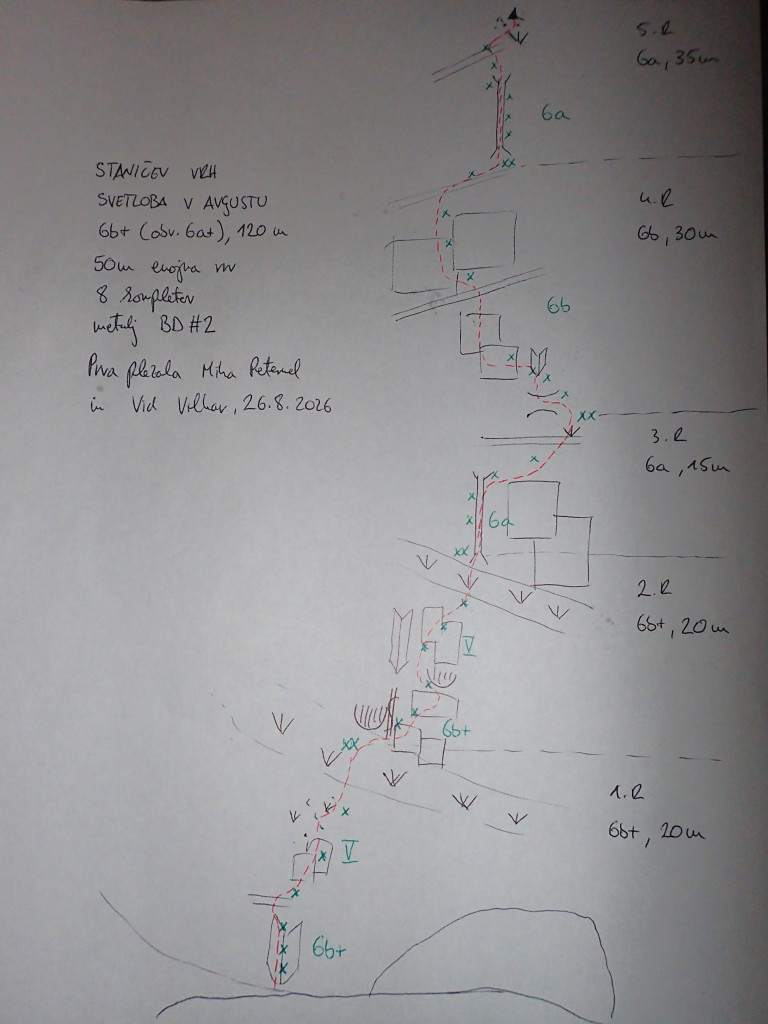 STANIČEV VRH
SVETLOBA V AVGUSTU
6b+ (obv. 6a+), 120 m
50m enojna vrv
8 kompletov
metulj BD #2
Prva plezala Miha Peternel
in Vid Velkav, 26.8.2026
5.R
6a, 35m
6a
4.R
6b, 30m
6b
3.R
6a, 15m
6a
2.R
6b+, 20m
V
6b+
1.R
6b+, 20m
V
6b+